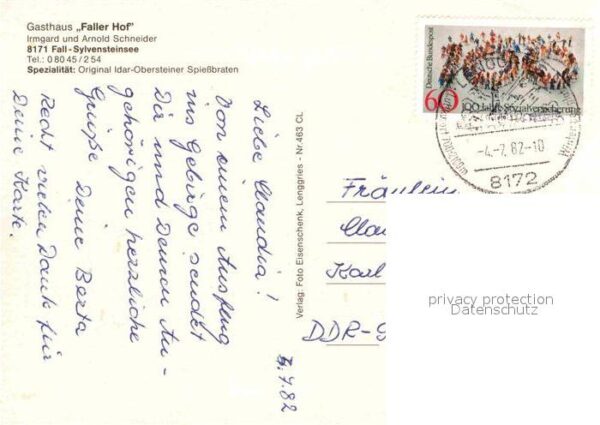 Gasthaus „Faller Hof"
Irmgard und Arnold Schneider
8171 Fall-Sylvensteinsee
Tel.: 0 80 45 / 2 54
Spezialität: Original Idar-Obersteiner Spießbraten
Liebe Claudia!
Von einem Ausflug
ins Gebirge sendet
Dir und Deinen An-
gehörigen herzliche
Grüße Deine Berta
Recht vielen Dank für
Deine Karte.
4.7.82
Verlag: Foto Eisenschenk, Lenggries - Nr. 463 CL
Deutsche Bundespost
60
100 Jahre Sozialversicherung
-4.-7.82-10
8172
Fräulein
Clau
Karl
DDR-9
privacy protection
Datenschutz